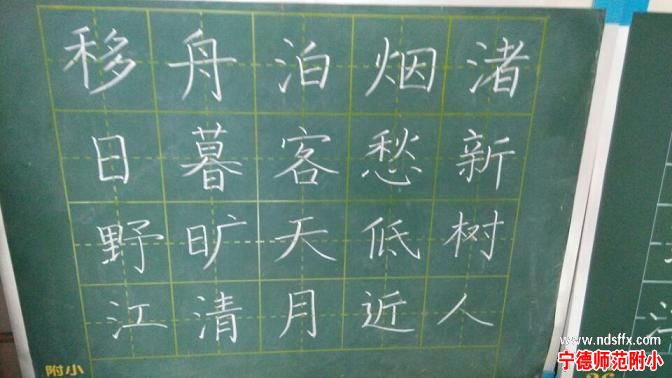 移舟泊烟渚
日暮客愁新
野旷天低树
江清月近人
附小
www.ndsffx.com
宁德师范附小